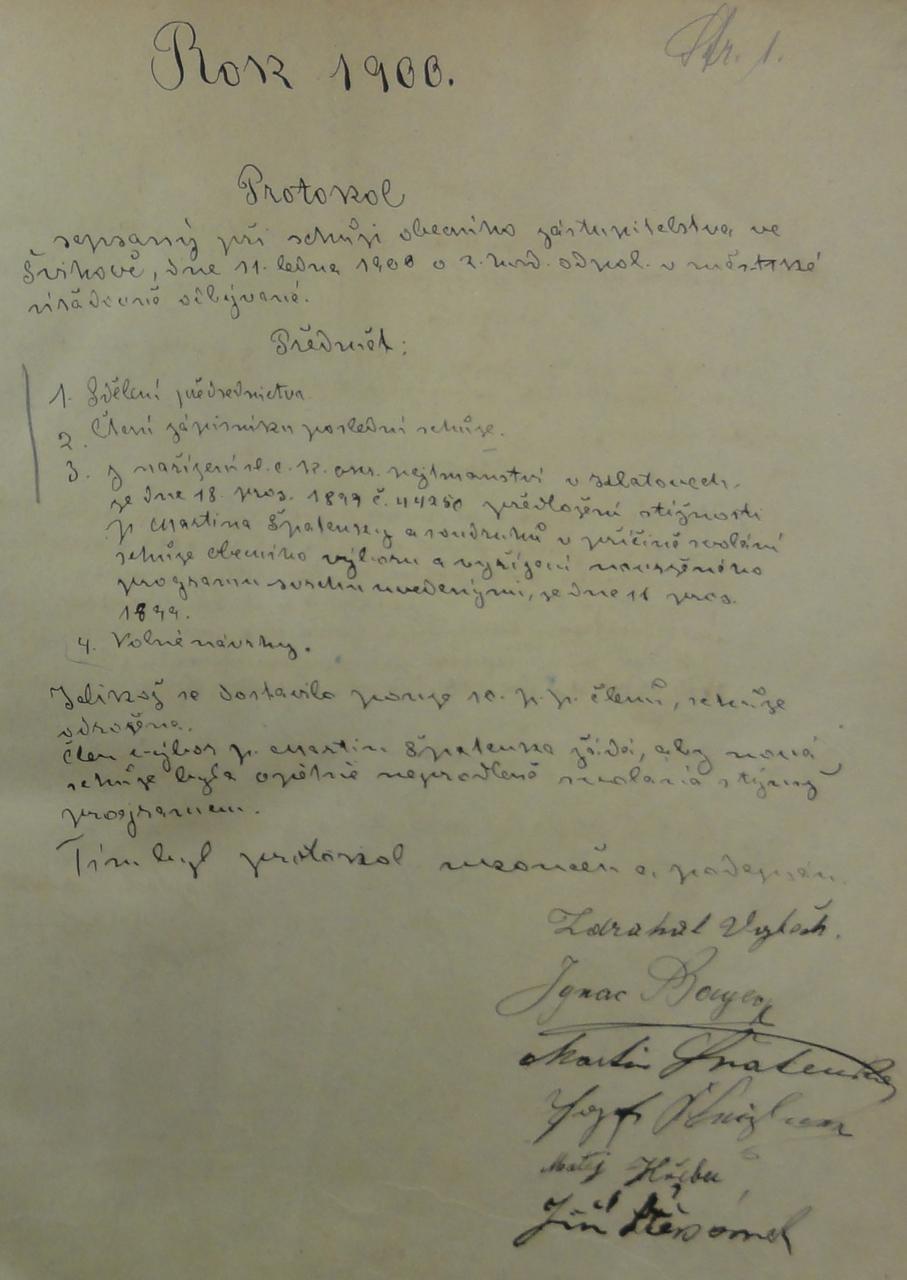 Rok 1900.
Str. 1.
Protokol
sepsaný při schůzi obecního zástupitelstva ve
Švihově, dne 11. ledna 1900 o 2. hod. odpol. v městské
úřadovně odbývané.
Předmět:
1. Sdělení předsednictva
2. Čtení zápisníku poslední schůze.
3. Z nařízení sl. c. k. okr. hejtmanství v Klatovech
ze dne 18. pros. 1899 č. 44250 předložení stížnosti
p. Martina Špatenky a soudruhů v příčině svolání
schůze obecního výboru a vyřízení navrženého
programu svrchu uvedenými, ze dne 11 pros.
1899.
4. Volné návrhy.
Jelikož se dostavilo pouze 10. p. p. členů, schůze
odročena.
Člen výbor p. Martin Špatenka žádá, aby nová
schůze byla opětně neprodleně svolána s týmž
programem.
Tím byl protokol ukončen a podepsán.
Zdrahal Vojtěch.
Ignac Bayer
Martin Špatenka
Josef
Matěj
Jiří